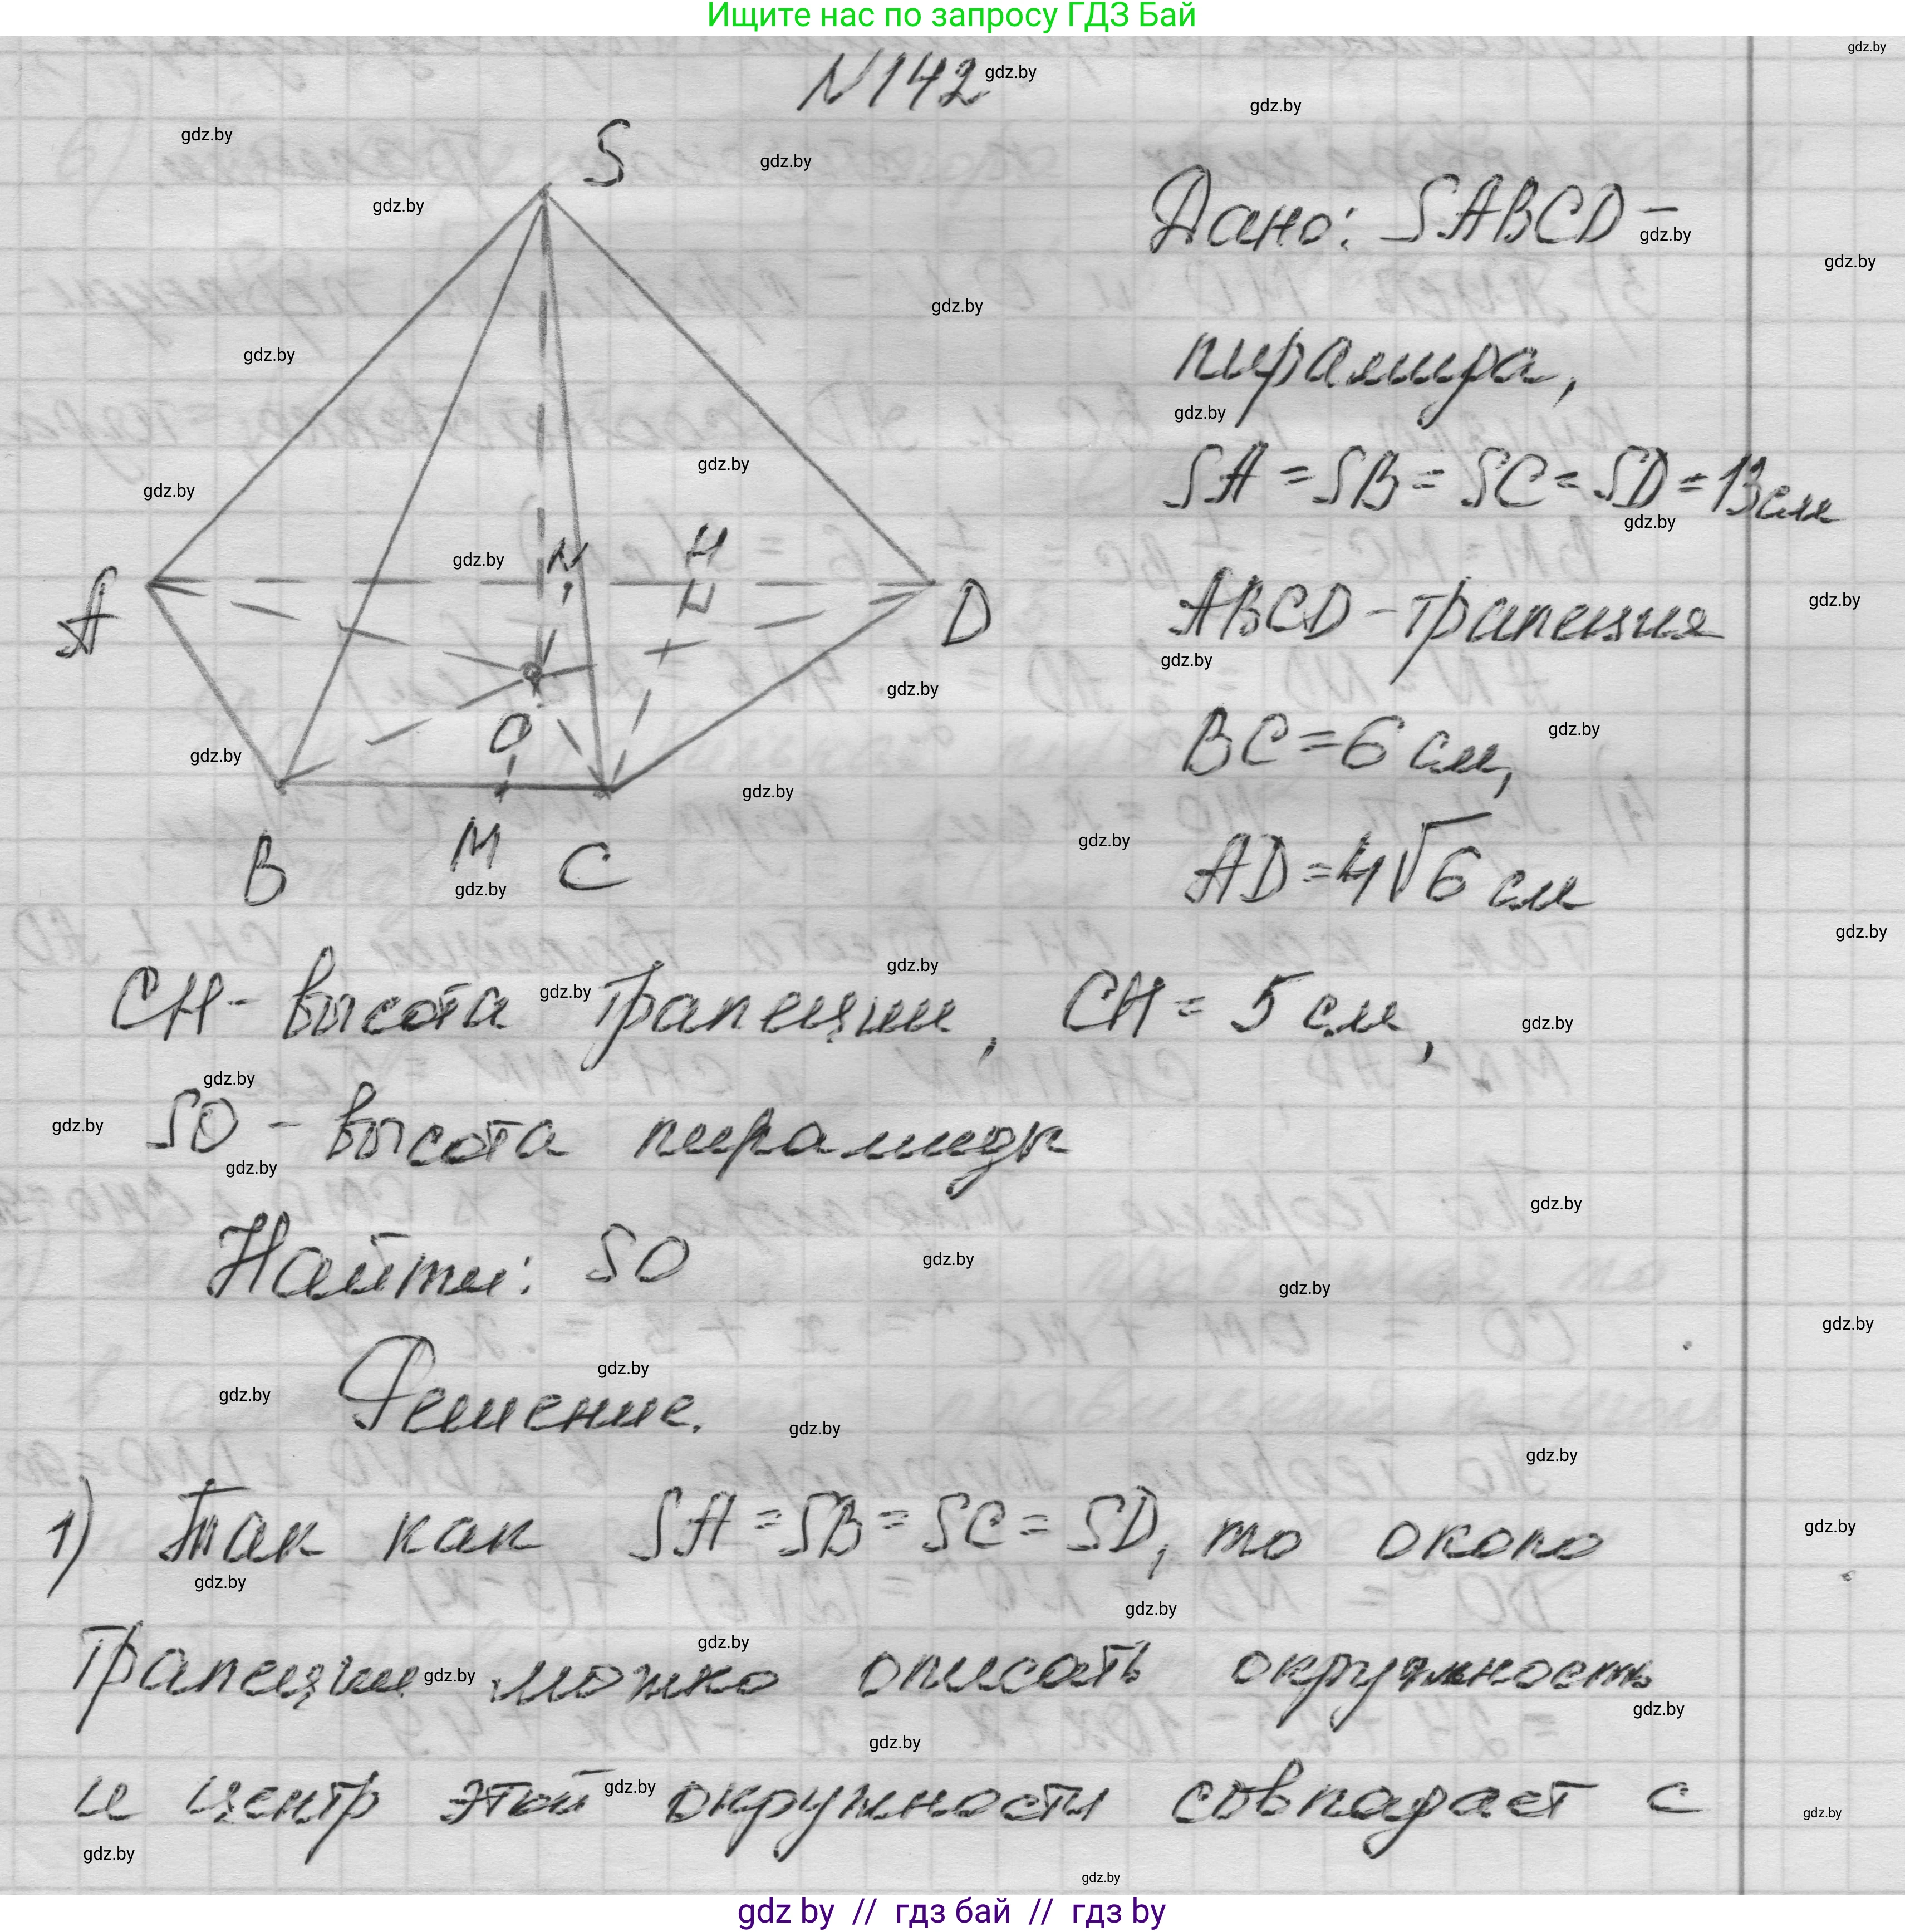 Ищите нас по запросу ГДЗ Бай
N142
S
Дано: SABCD –
пирамида,
SA = SB = SC = SD = 13 см
N H
A D
ABCD – трапеция
O
BC = 6 см,
B M C
AD = 4√6 см
CH – высота трапеции, CH = 5 см,
SO – высота пирамиды
Найти: SO
Решение.
1) Так как SA = SB = SC = SD, то около
трапеции можно описать окружность
и центр этой окружности совпадает с
gdz.by
gdz by // гдз бай // гдз by